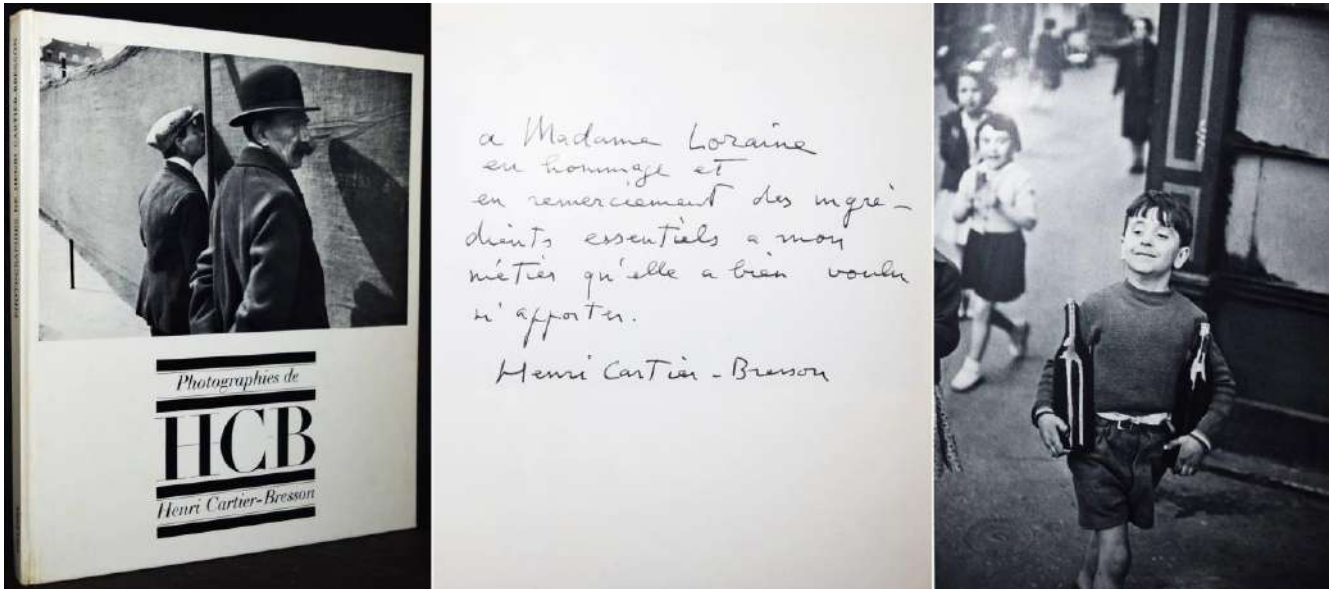 PHOTOGRAPHIES DE HENRI CARTIER-BRESSON
Photographies de
HCB
Henri Cartier-Bresson
a Madame Loraine
en hommage et
en remerciement des ingré-
dients essentiels a mon
métier qu'elle a bien voulu
m'apporter.
Henri Cartier-Bresson